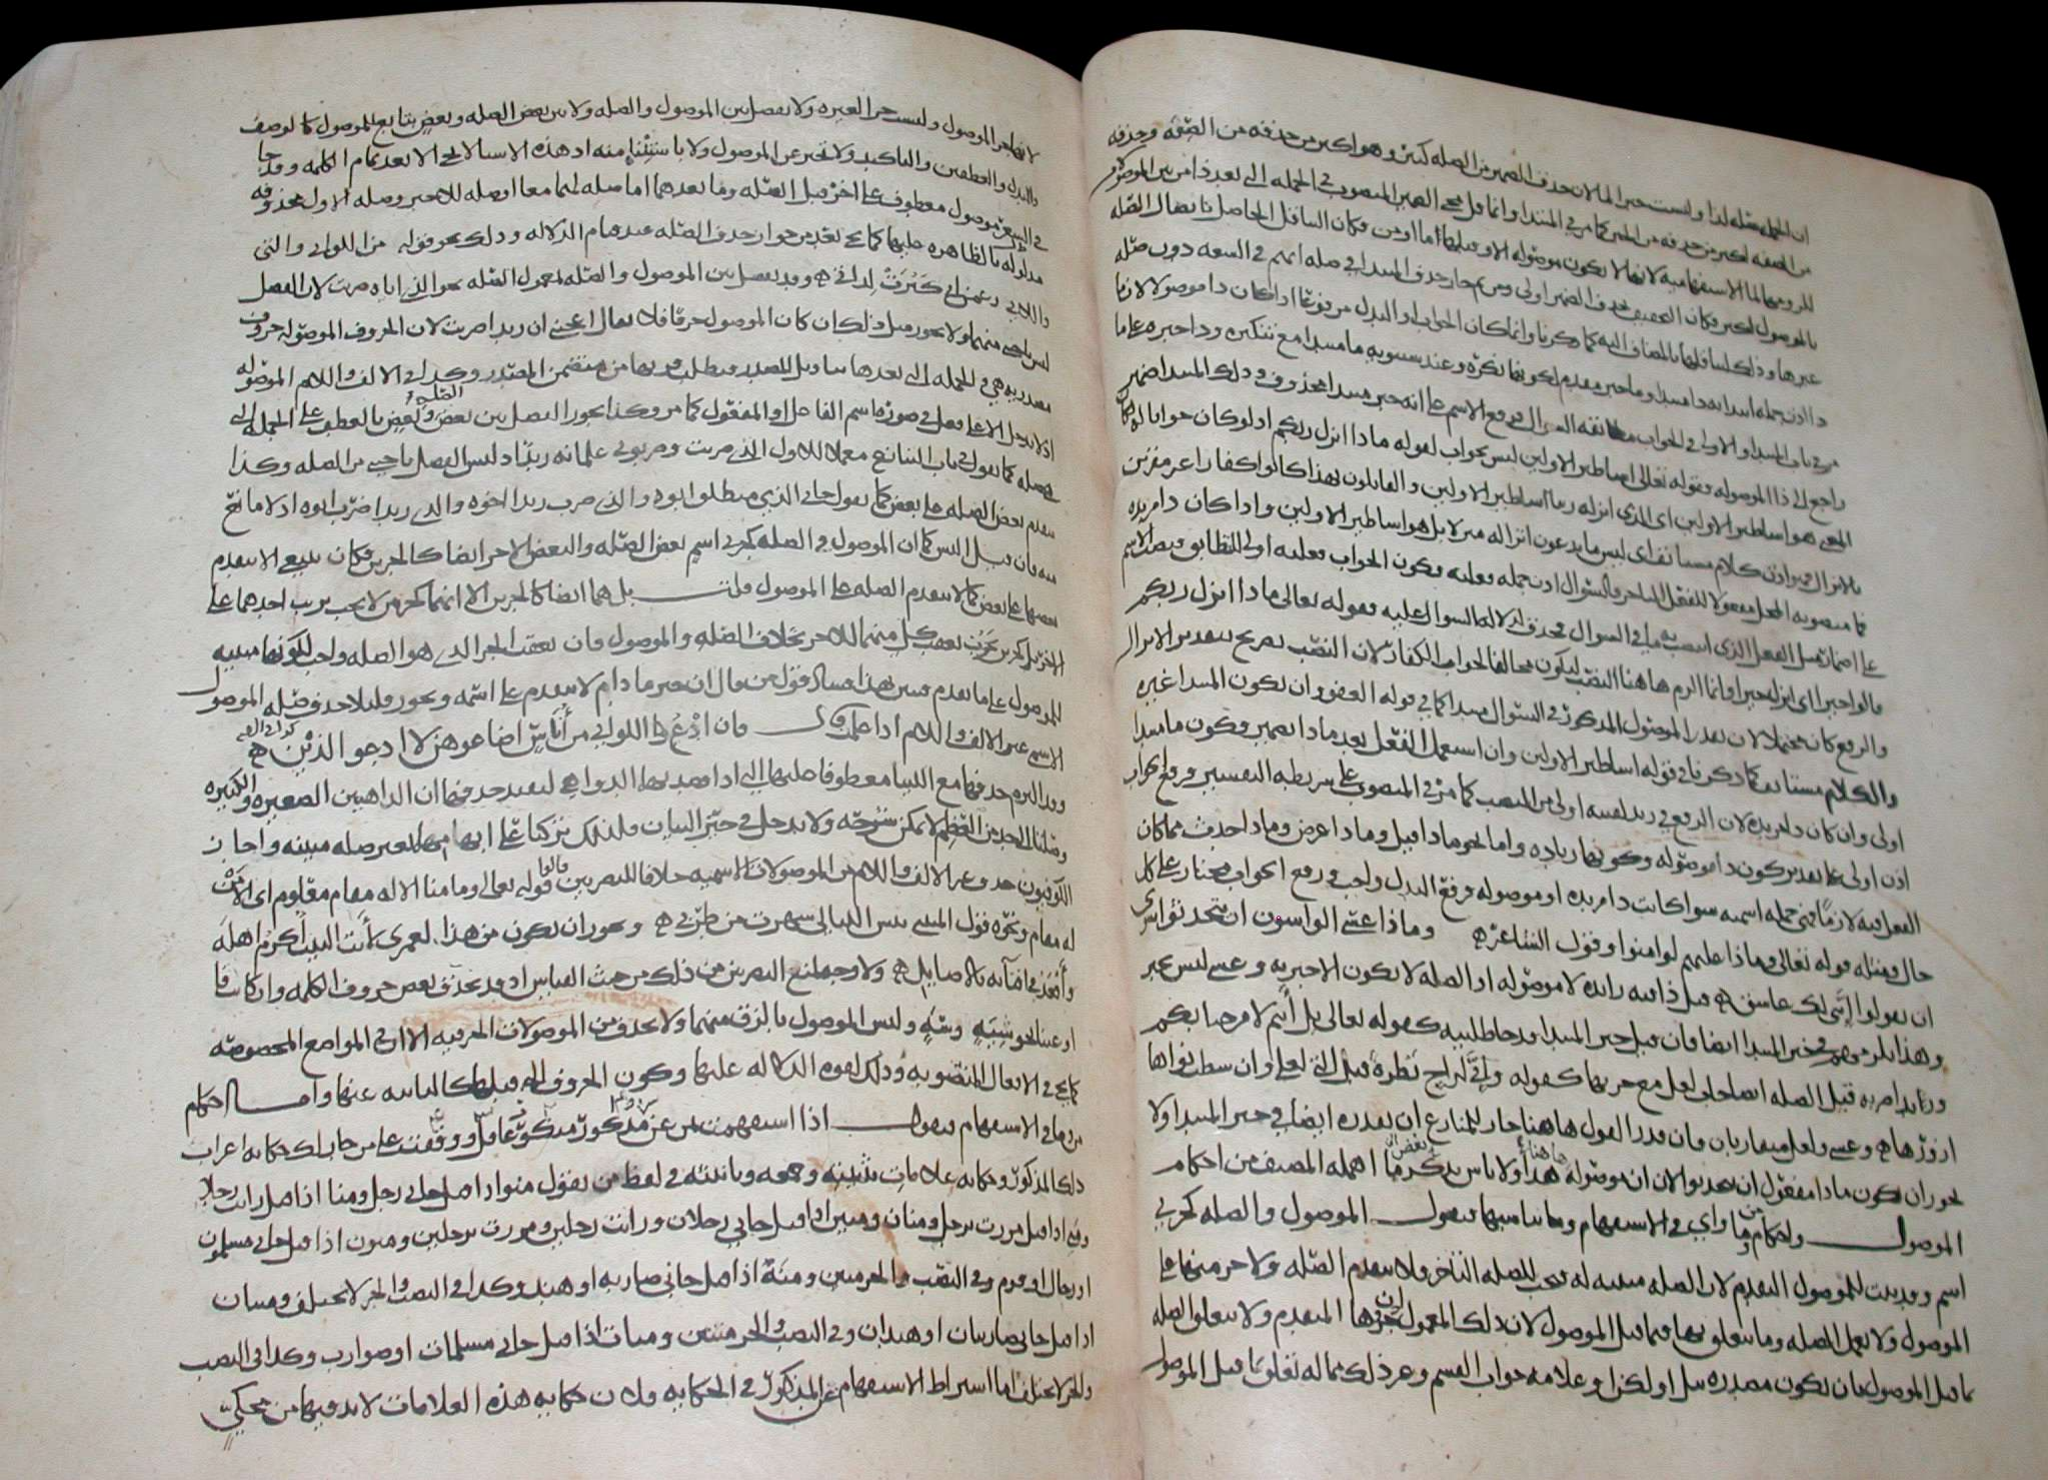 ان الجملة صلة لذا وليست خبرا لما لان حذف الضمير من الصلة كثير وهو اكثر من حذفه من الصفة وحذفه
من الصفة اكثر من حذفه من الخبر كما مر في المبتدا وانما قل مجي الضمير المنصوب في الجملة التي بعد ذا من بين الموصولات
للزومها لما الاستفهامية لانها لا تكون موصولة الا وقبلها اما او من فكان التثاقل الحاصل باتصال الصلة
بالموصول اكثر فكان التخفيف بحذف الضمير اولى ومن ثم جاز حذف المبتدا في صلة ايهم في السعة دون صلة
غيرها وذلك لتثاقلها بالمضاف اليه كما ذكرنا وانما كان الجواب او البدل مرفوعا اذا كان ذا موصولا لان ما
ذا اذن جملة ابتدائية ذا مبتدا وما خبر مقدم لكونها نكرة وعند سيبويه ما مبتدا مع تنكيره وذا خبره على ما
مر في باب المبتدا والاولى في الجواب مطابقة السوال فرفع الاسم على انه خبر مبتدا محذوف وذلك المبتدا ضمير
راجع الى ذا الموصولة وقوله تعالى اساطير الاولين ليس بجواب لقوله ماذا انزل ربكم اذ لو كان جوابا له لكان
المعنى هو اساطير الاولين اي الذي انزله ربنا اساطير الاولين والقائلون بهذا كانوا كفارا غير مقرين
بالانزال فهو اذن كلام مستانف اي ليس ما يدعون انزاله منزلا بل هو اساطير الاولين واذا كان ذا مزيدة
فما منصوبة المحل مفعولا للفعل المتاخر فالسوال اذن جملة فعلية فكون الجواب فعلية اولى للتطابق فينصب الاسم
على اضمار مثل الفعل الذي انتصب به ما في السوال فحذف لدلالة السوال عليه فقوله تعالى ماذا انزل ربكم
قالوا خيرا اي انزل خيرا وانما الزم ها هنا النصب ليكون مخالفا لجواب الكفار لان النصب تصريح بتقدير الانزال
والرفع كان محتملا لان تقدر الموصول المذكور في السوال مبتدا كما في قوله العفو وان يكون المبتدا غيره
والكلام مستانف كما ذكرنا في قوله اساطير الاولين وان اشتغل الفعل بعد ماذا بضمير فكون ما مبتدا
اولى وان كان ذا مزيدة لان الرفع في زيد لقيته اولى من النصب كما مر في المنصوب على شريطة التفسير ورفع الجواب
اذن اولى على تقدير كون ذا موصولة وكونها زيادة واما نحو ماذا قيل وماذا عرض وماذا حدث مما كان
الفعل فيه لازما فهي جملة اسمية سوا كانت ذا مزيدة او موصولة فرفع البدل واجب ورفع الجواب مختار على كل
حال ومثله قوله تعالى وماذا عليهم لو امنوا وقول الشاعر ه وماذا عسى الواشون ان يتحدثوا سوى
ان يقولوا انني لك عاشق ه قيل ذا فيه زائدة لا موصولة اذ الصلة لا تكون الا خبرية وعسى ليس خبر
وهذا يلزمهم في خبر المبتدا ايضا فان قيل خبر المبتدا قد جا طلبية كقوله تعالى بل انتم لا مرحبا بكم
ورويد امر به قيل الصلة ايضا جات لعل مع جزيها كقوله واني لراج نظرة قبل التي لعلي وان شطت نواها
ازورها ه وعسى ولعل متقاربان فان قدر القول هاهنا جاز للمنازع ان يقدره ايضا في خبر المبتدا ولا
يجوز ان يكون ماذا مفعول ان يتحدثوا لان ان موصولة هذا ولا باس بذكر ما اهمله المصنف من احكام
هاهنا بعض
الموصول ولاحكام ما واي في الاستفهام وما يناسبها فنقول الموصول والصلة كجزئي
من
اسم وقد ثبت للموصول التقدم لان الصلة مبينة له فيجب للصلة التاخر فلا يتقدم الصلة ولا جزء منها على
الموصول ولا تعمل الصلة وما يتعلق بها فيما قبل الموصول لان ذلك المعمول جزؤها المتقدم ولا يتعلق الصلة
بما قبل الموصول بان تكون مصدرة ببل او لكن او علامة جواب القسم وغير ذلك مما له تعلق بما قبل الموصول
لانها جزا الموصول وليست جزا لغيره ولا يفصل بين الموصول والصلة ولا بين بعض الصلة وبعض بتابع للموصول كالوصف
والبدل والعطفين والتاكيد ولا تخبر عن الموصول ولا باستثناء منه اذ هذه الاشيا لا تجي الا بعد تمام الكلمة وقد جا
في الشعر موصول معطوف على اخر قبل الصلة وما بعدهما اما صلة لهما معا او صلة للاخير وصلة الاول محذوفة
مدلول بالظاهرة عليها كما يجي بعد من جواز حذف الصلة عند قيام الدلالة وذلك نحو قوله من اللواتي والتي
واللاتي زعمن اني كبرت لداتي ه وقد يفصل بين الموصول والصلة بمعمول الصلة نحو الذي اياه ضربت لان الفصل
ليس باجنبي منهما ولا يجوز مثل ذلك ان كان الموصول حرفا فلا يقال اعجبني ان زيدا ضربت لان الحروف الموصولة حروف
مصدرية هي والجملة التي بعدها بتاويل المصدر فيطلب قربها من متضمن المصدر وكذا في الالف واللام الموصولة
اذ لا يدخل الا على فعل في صورة اسم الفاعل او المفعول كما مر وكذا يجوز الفصل بين بعض وبعض بالعطف على الجملة التي
الصلة
هي صلة كما تقول في باب التنازع معملا للاول الذي ضربت وضربوني غلمانه زيد اذ ليس الفصل باجنبي من الصلة وكذا
يتقدم بعض الصلة على بعض كما تقول جاني الذي منطلق ابوه والذي ضرب زيدا اخوه والذي زيدا ضرب ابوه اذ لا مانع
منه فان قيل اليس كما ان الموصول والصلة كجزئي اسم بعض الصلة والبعض الاخر ايضا كالجزين فكان ينبغي الا يتقدم
بعضها على بعض كما لا يتقدم الصلة على الموصول قلت بل هما ايضا كالجزين الا انهما كجزين لا يجب ترتب احدهما على
الاخر بل كجزين يجوز تعقب كل منهما للاخر بخلاف الصلة والموصول فان تعقب الجزء الذي هو الصلة واجب لكونها مبينة
للموصول على ما تقدم فتبين بهذا فساد قول من قال ان خبر ما دام لا يتقدم على اسمه ويجوز قليلا حذف صلة الموصول
الاسمي غير الالف واللام اذا علمت قال فان ادع اللواتي من اناس اضاعوهن لا ادعو الذينا ه
وقد التزم حذفها مع اللتيا معطوفا عليها التي اذا قصد بهما الدواهي ليفيد حذفها ان الداهيتين الصغيرة والكبيرة
وصلتا الى حد من العظم لا يمكن شرحه ولا يدخل في حيز البيان فلذلك تركتا على ابهامهما بغير صلة مبينة واجاز
الكوفيون حذف غير الالف واللام من الموصولات الاسمية خلافا للبصريين قوله تعالى وما منا الا له مقام معلوم اي الا من
قالوا
له مقام ونحوه قول المتنبي بئس الليالي سهرت من طربي ه ويجوز ان يكون من هذا لعمري لانت البيت اكرم اهله
واقعد في افيائه بالاصايل ه ولا وجه لمنع البصريين من ذلك من حيث القياس اذ قد يحذف بعض حروف الكلمة وان كانت فا
او عينا نحو شية وسه وليس الموصول بالزق منهما ولا يحذف من الموصولات الحرفية الا ان في المواضع المخصوصة
كما يجي في الافعال المنصوبة وذلك لقوة الدلالة عليها وكون الحروف التي قبلها كالنائبة عنها واما احكام
من وما في الاستفهام فنقول اذا استفهمت بمن عن مذكور منكور عاقل ووقفت على من جاز لك حكاية اعراب
ذلك المذكور وحكاية علامات تثنيته وجمعه وتانيثه في لفظ من تقول منو اذا قيل جاني رجل ومنا اذا قيل رايت رجلا
ومني اذا قيل مررت برجل ومنان ومنين اذا قيل جاني رجلان ورايت رجلين ومررت برجلين ومنون اذا قيل جاني مسلمون
او رجال او قوم وفي النصب والجر منين ومنه اذا قيل جاتني ضاربة او هند وكذا في النصب والجر لا يختلف ومنتان
اذا قيل جاتني ضاربتان او هندان وفي النصب والجر منتين ومنات اذا قيل جاتني مسلمات او ضوارب وكذا في النصب
والجر لا يختلف اما اشتراط الاستفهام عن المذكور في الحكاية فلان حكاية هذه العلامات لا بد فيها من محكي